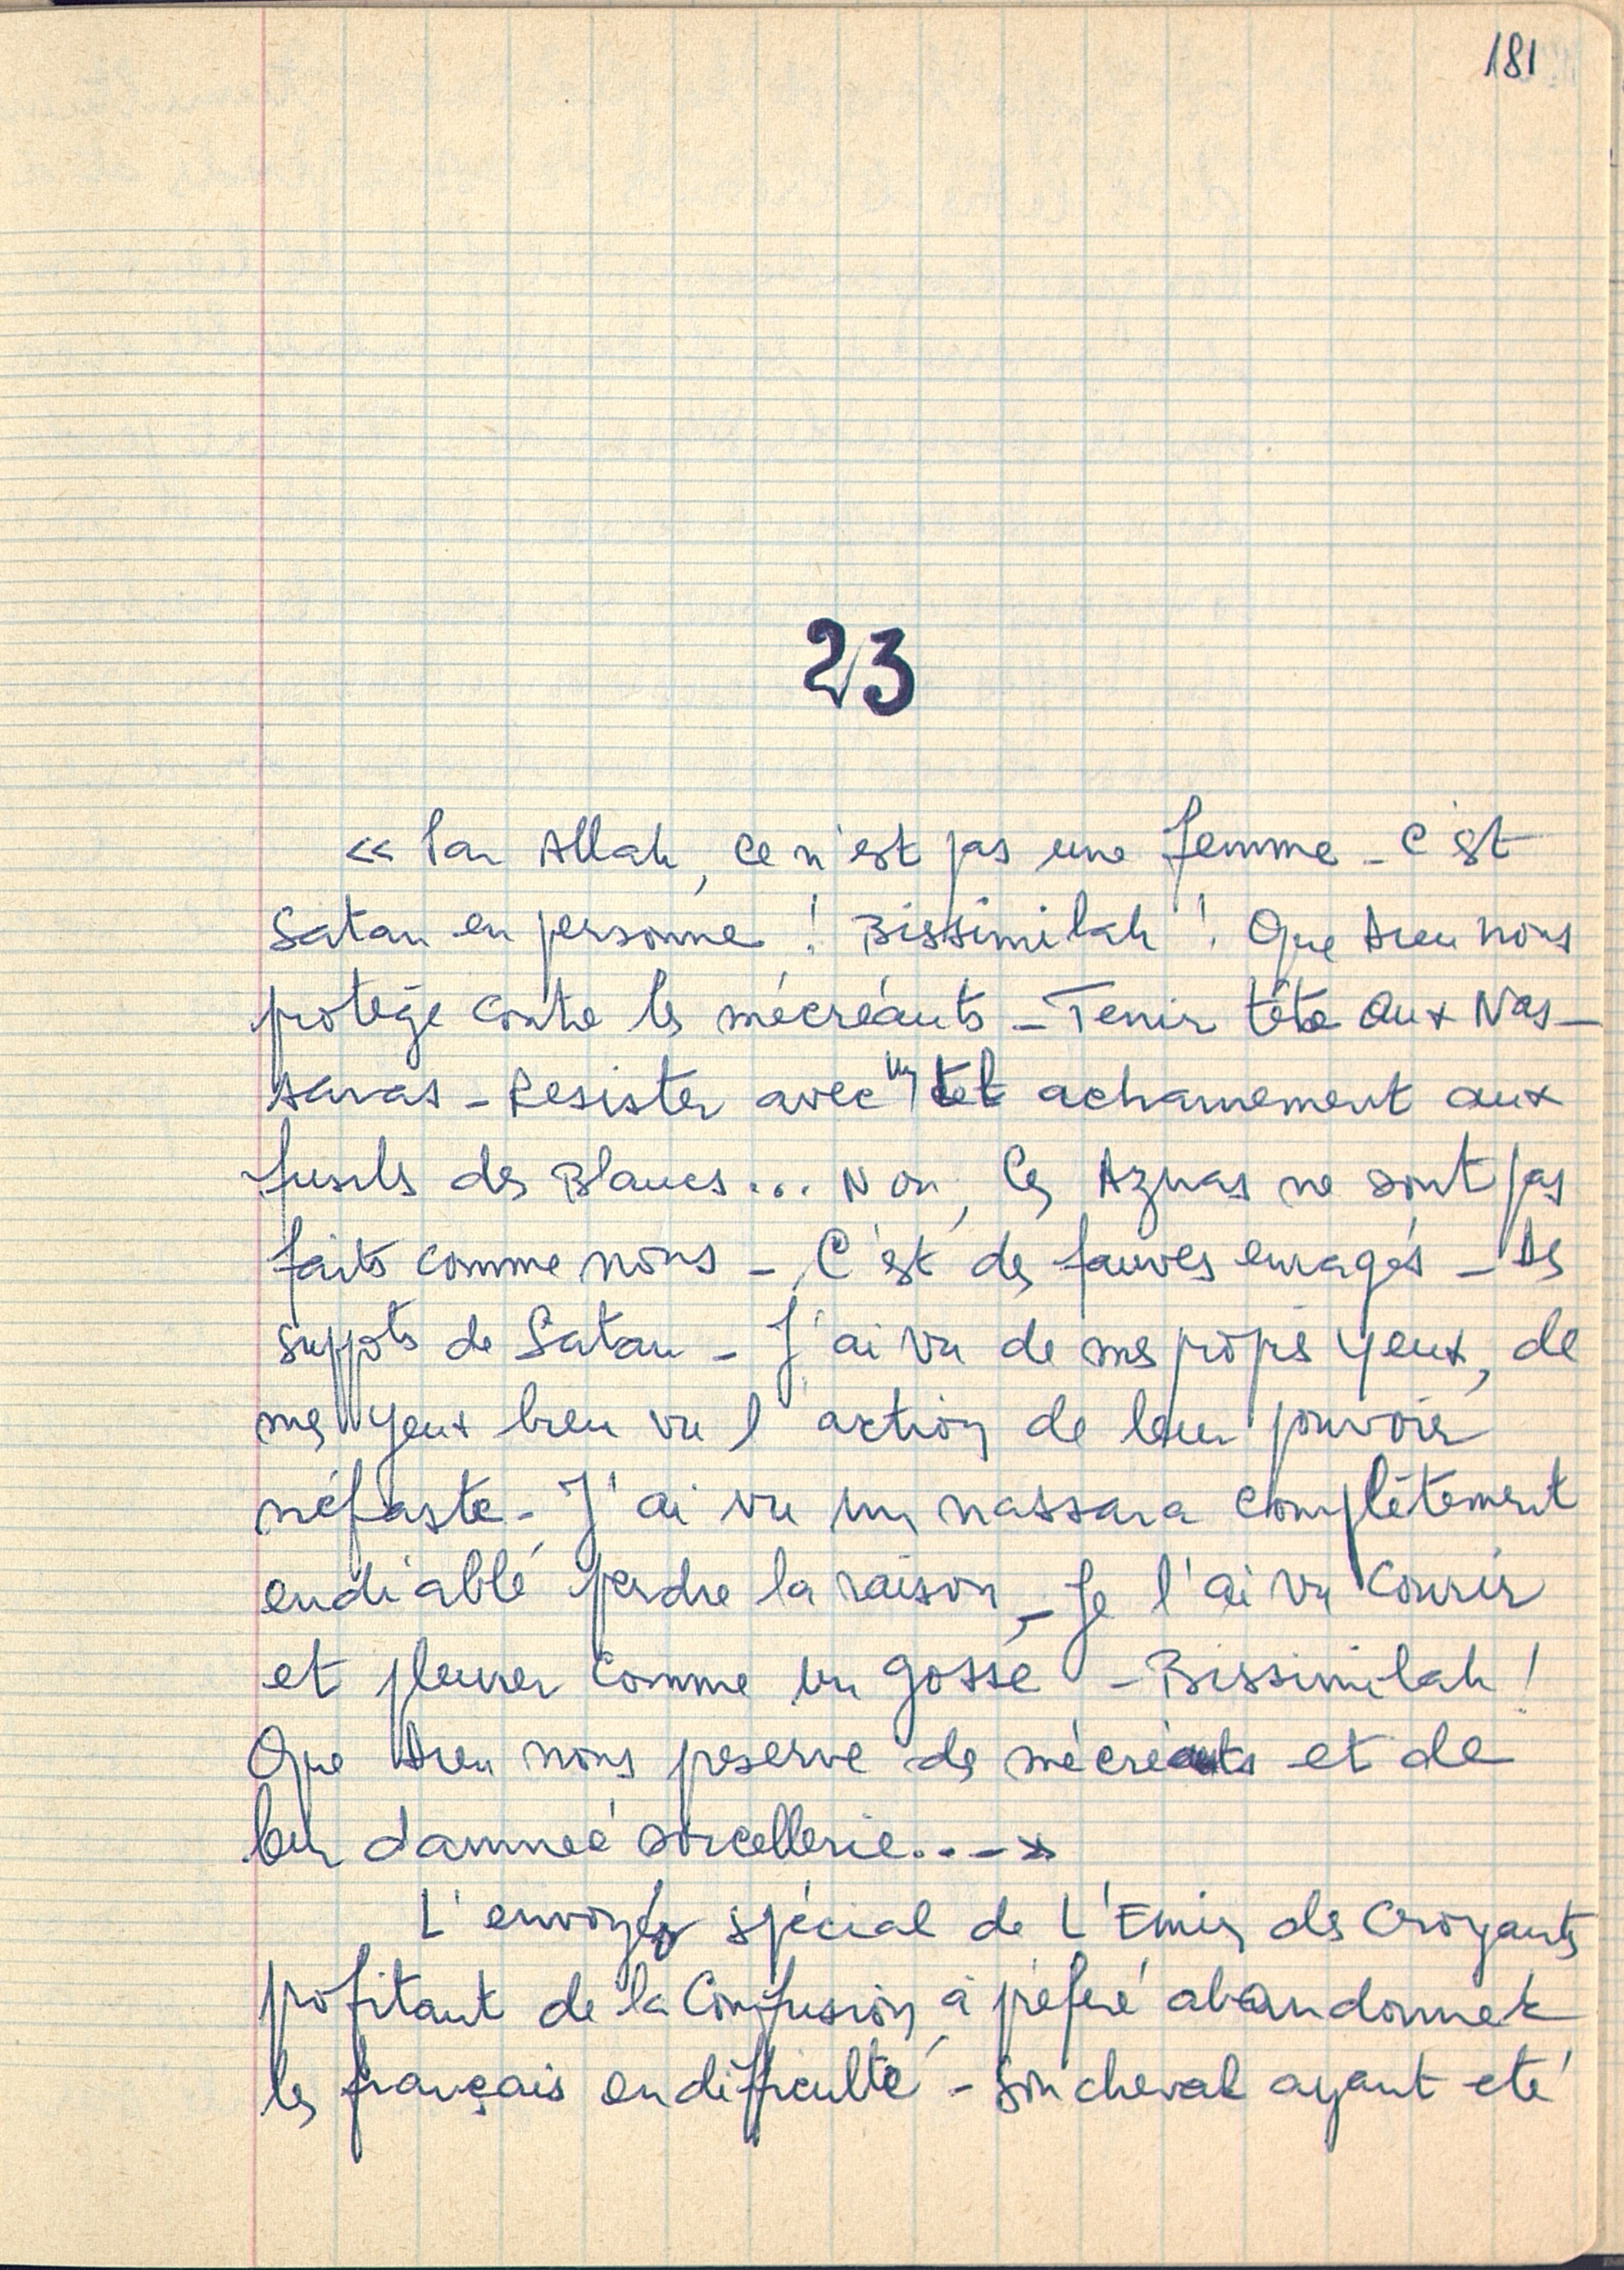 181
23
« Par Allah, ce n'est pas une femme - C'est
Satan en personne ! Bissimilah ! Que Dieu nous
protège contre les mécréants - Tenir tête aux Nas-
saras - Resister avec un tel acharnement aux
fusils des Blancs... Non, les Aznas ne sont pas
faits comme nous - C'est des fauves enragés - Des
suppots de Satan - J'ai vu de mes propres yeux, de
mes yeux bien vu l'action de leur pouvoir
néfaste - J'ai vu un nassara complètement
endiablé perdre la raison, - Je l'ai vu courir
et pleurer comme un gosse - Bissimilah !
Que Dieu nous preserve des mécréants et de
leur damnée sorcellerie.... »
L'envoyé spécial de L'Emir des Croyants
profitant de la Confusion, a préféré abandonner
les français en difficulté - Son cheval ayant eté